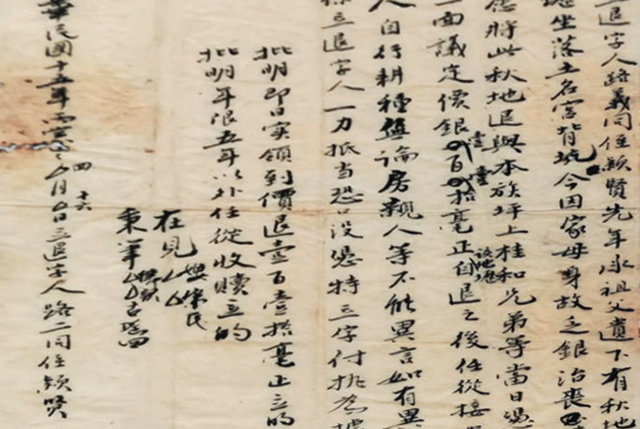 立退字人路義同侄穎賢先年承祖父遺下有秋地
坐落土名宮背坑今因家母身故乏銀治喪
將此秋地退與本族坪上桂和兄弟等當日憑
一面議定價銀壹百壹拾毫正自退之後任從
人自行耕種無論房親人等不能異言如有異
立退字人一力抵当恐口沒憑特立字付执為據
批明即日实領到價退壹百壹拾毫正立的
批明年限五年以外任從收贖立的
在見 榮民
秉筆
民國十五年丙寅 四月十六日立退字人路二同侄穎賢